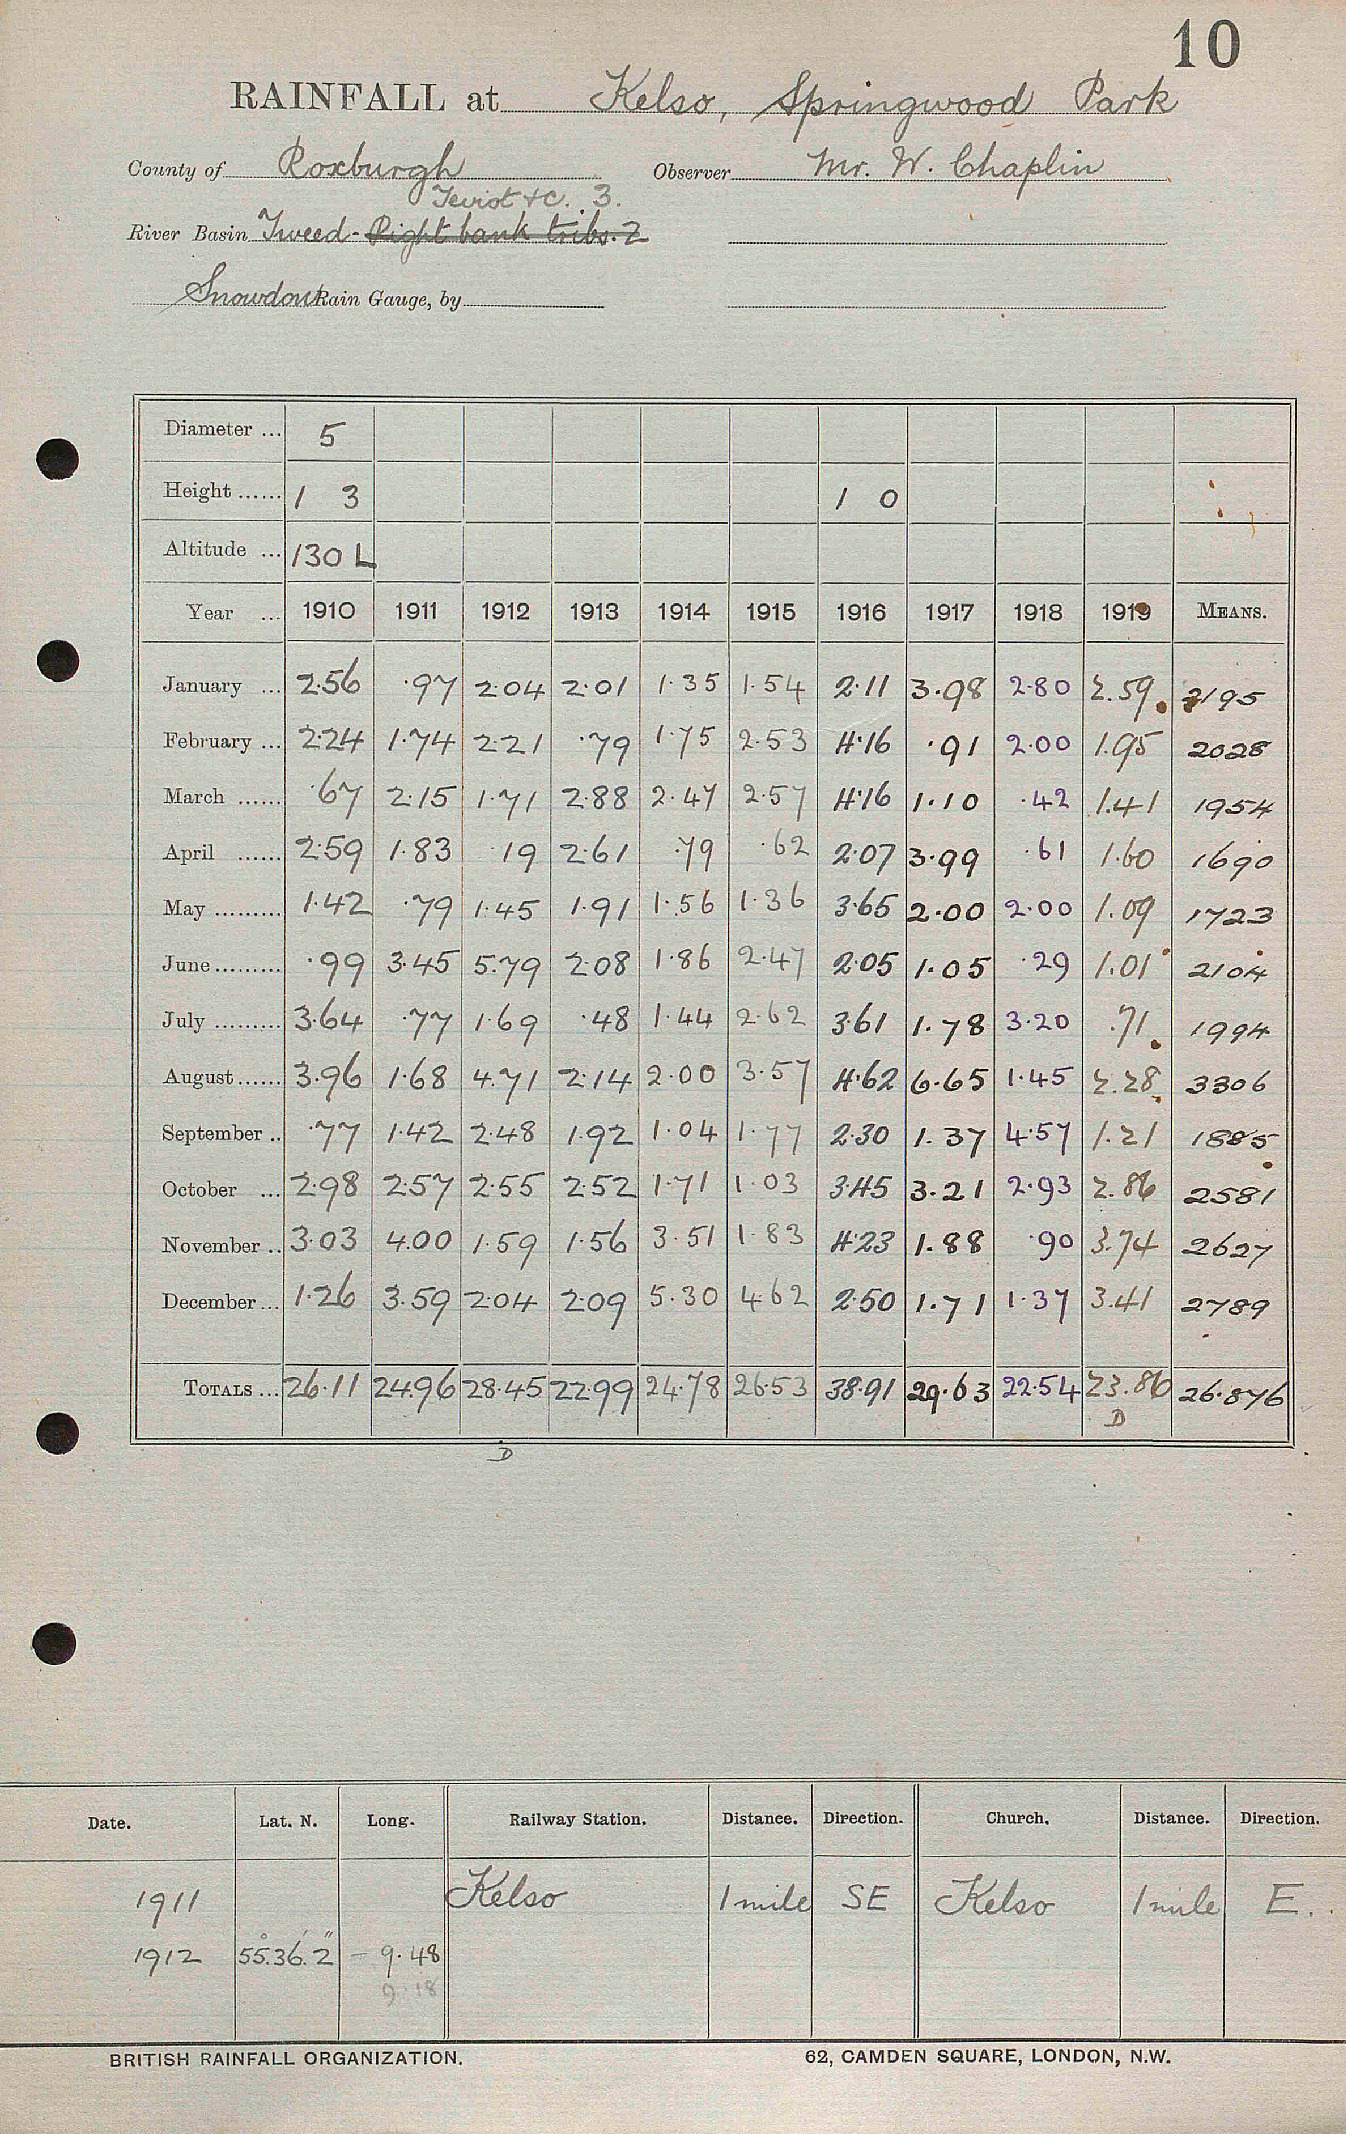 10
RAINFALL at Kelso, Springwood Park
County of Roxburgh Observer Mr. W. Chaplin
Teviot &c. 3.
River Basin Tweed - Right bank tribs. 2
Snowdon Rain Gauge, by
Diameter ... 5
Height ...... 1 3 1 0
Altitude ... 130 L
Year ... 1910 1911 1912 1913 1914 1915 1916 1917 1918 1919 MEANS.
January ... 2.56 .97 2.04 2.01 1.35 1.54 2.11 3.98 2.80 2.59 2195
February ... 2.24 1.74 2.21 .79 1.75 2.53 4.16 .91 2.00 1.95 2028
March ...... .67 2.15 1.71 2.88 2.47 2.57 4.16 1.10 .42 1.41 1954
April ...... 2.59 1.83 .19 2.61 .79 .62 2.07 3.99 .61 1.60 1690
May ......... 1.42 .79 1.45 1.91 1.56 1.36 3.65 2.00 2.00 1.09 1723
June ......... .99 3.45 5.79 2.08 1.86 2.47 2.05 1.05 .29 1.01 2104
July ......... 3.64 .77 1.69 .48 1.44 2.62 3.61 1.78 3.20 .71 1994
August ...... 3.96 1.68 4.71 2.14 2.00 3.57 4.62 6.65 1.45 2.28 3306
September .. .77 1.42 2.48 1.92 1.04 1.77 2.30 1.37 4.57 1.21 1885
October ... 2.98 2.57 2.55 2.52 1.71 1.03 3.45 3.21 2.93 2.86 2581
November .. 3.03 4.00 1.59 1.56 3.51 1.83 4.23 1.88 .90 3.74 2627
December ... 1.26 3.59 2.04 2.09 5.30 4.62 2.50 1.71 1.37 3.41 2789
TOTALS ... 26.11 24.96 28.45 22.99 24.78 26.53 38.91 29.63 22.54 23.86 26.876
D
D
Date. Lat. N. Long. Railway Station. Distance. Direction. Church. Distance. Direction.
1911 Kelso 1 mile SE Kelso 1 mile E.
1912 55° 36' 2" - 9.48
9.18
BRITISH RAINFALL ORGANIZATION. 62, CAMDEN SQUARE, LONDON, N.W.